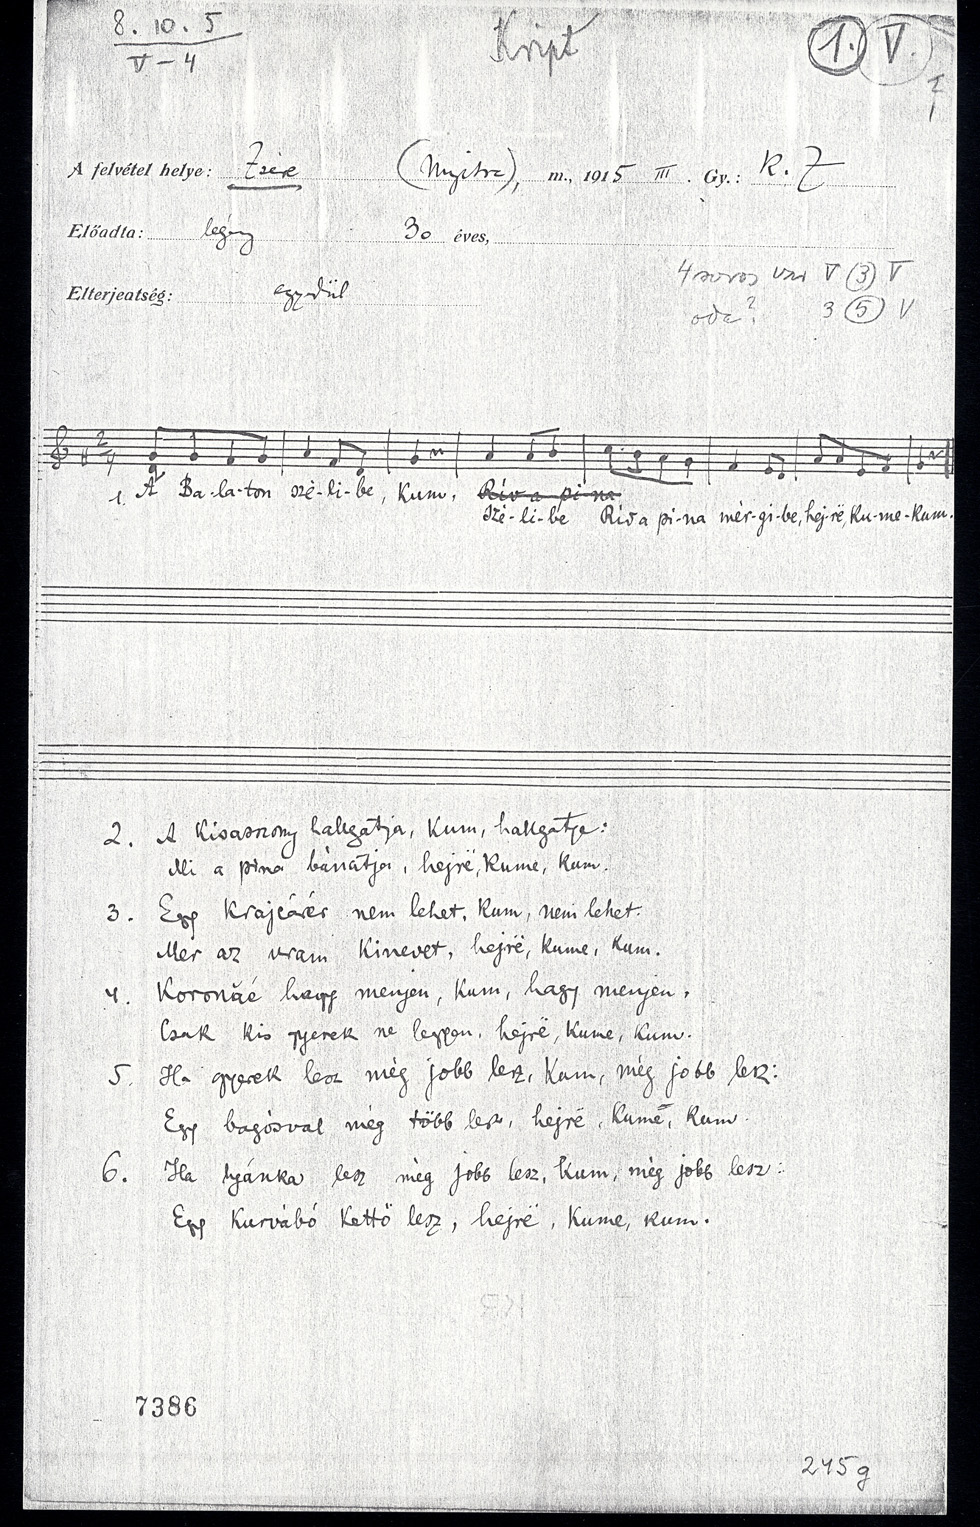 8. 10. 5
V - 4
Kript
1. V.
A felvétel helye: Zsére (Nyitra), m., 1915 III. Gy.: K. Z
Előadta: legény 30 éves,
Elterjedtség: egyedül
4 soros V 3 V
oda? 3 5 V
2/4
1. A Ba-la-ton szé-li-be, Kum, Rív a pi-na
szé-li-be Rív a pi-na mér-gi-be, hej-rë, ku-me-kum.
2. A kisasszony hallgatja, kum, hallgatja:
Mi a pina bánatja, hejrë, kume, kum.
3. Egy krajcárér nem lehet, kum, nem lehet.
Mer az uram kinevet, hejrë, kume, kum.
4. Koronáé hagy menjen, kum, hagy menjen,
Csak kis gyerek ne legyen, hejrë, kume, kum.
5. Ha gyerek lesz még jobb lesz, kum, még jobb lesz:
Egy bagósval még több lesz, hejrë, kume, kum.
6. Ha lyánka lesz még jobb lesz, kum, még jobb lesz:
Egy kurvábó kettő lesz, hejrë, kume, kum.
7386
245g